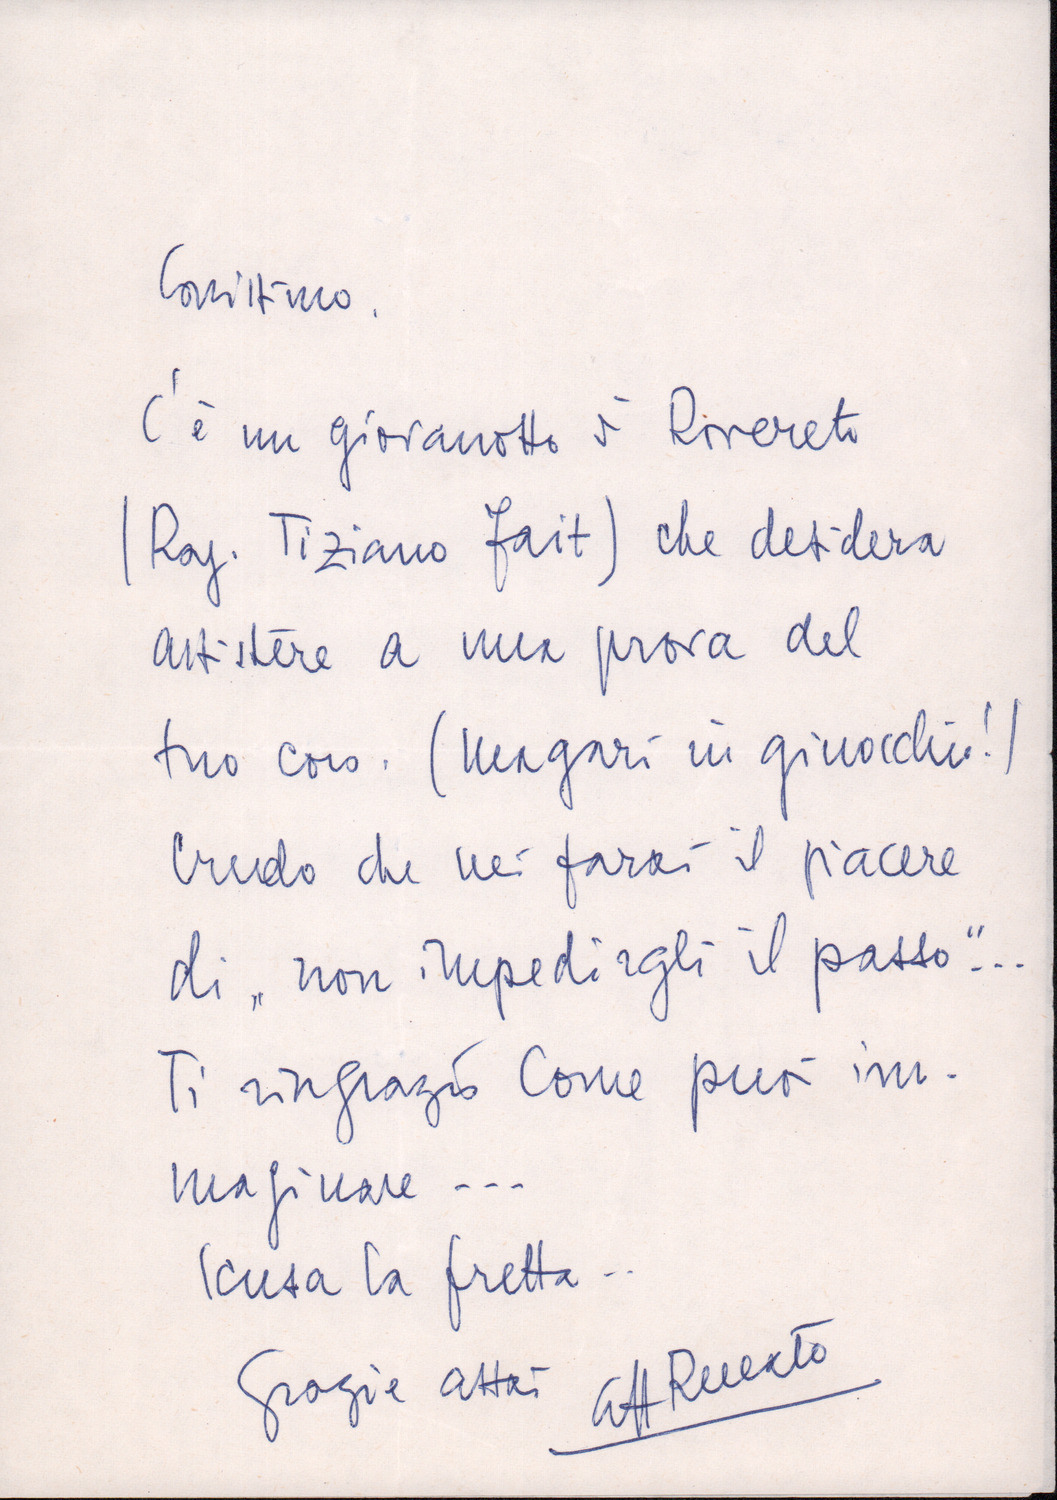 Carissimo.
C'è un giovanotto di Rovereto
(Rag. Tiziano Fait) che desidera
assistere a una prova del
tuo coro. (Magari in ginocchio!)
Credo che mi farai il piacere
di „non impedirgli il passo“...
Ti ringrazio come puoi im-
maginare ---
Scusa la fretta..
Grazie assai aff Renato